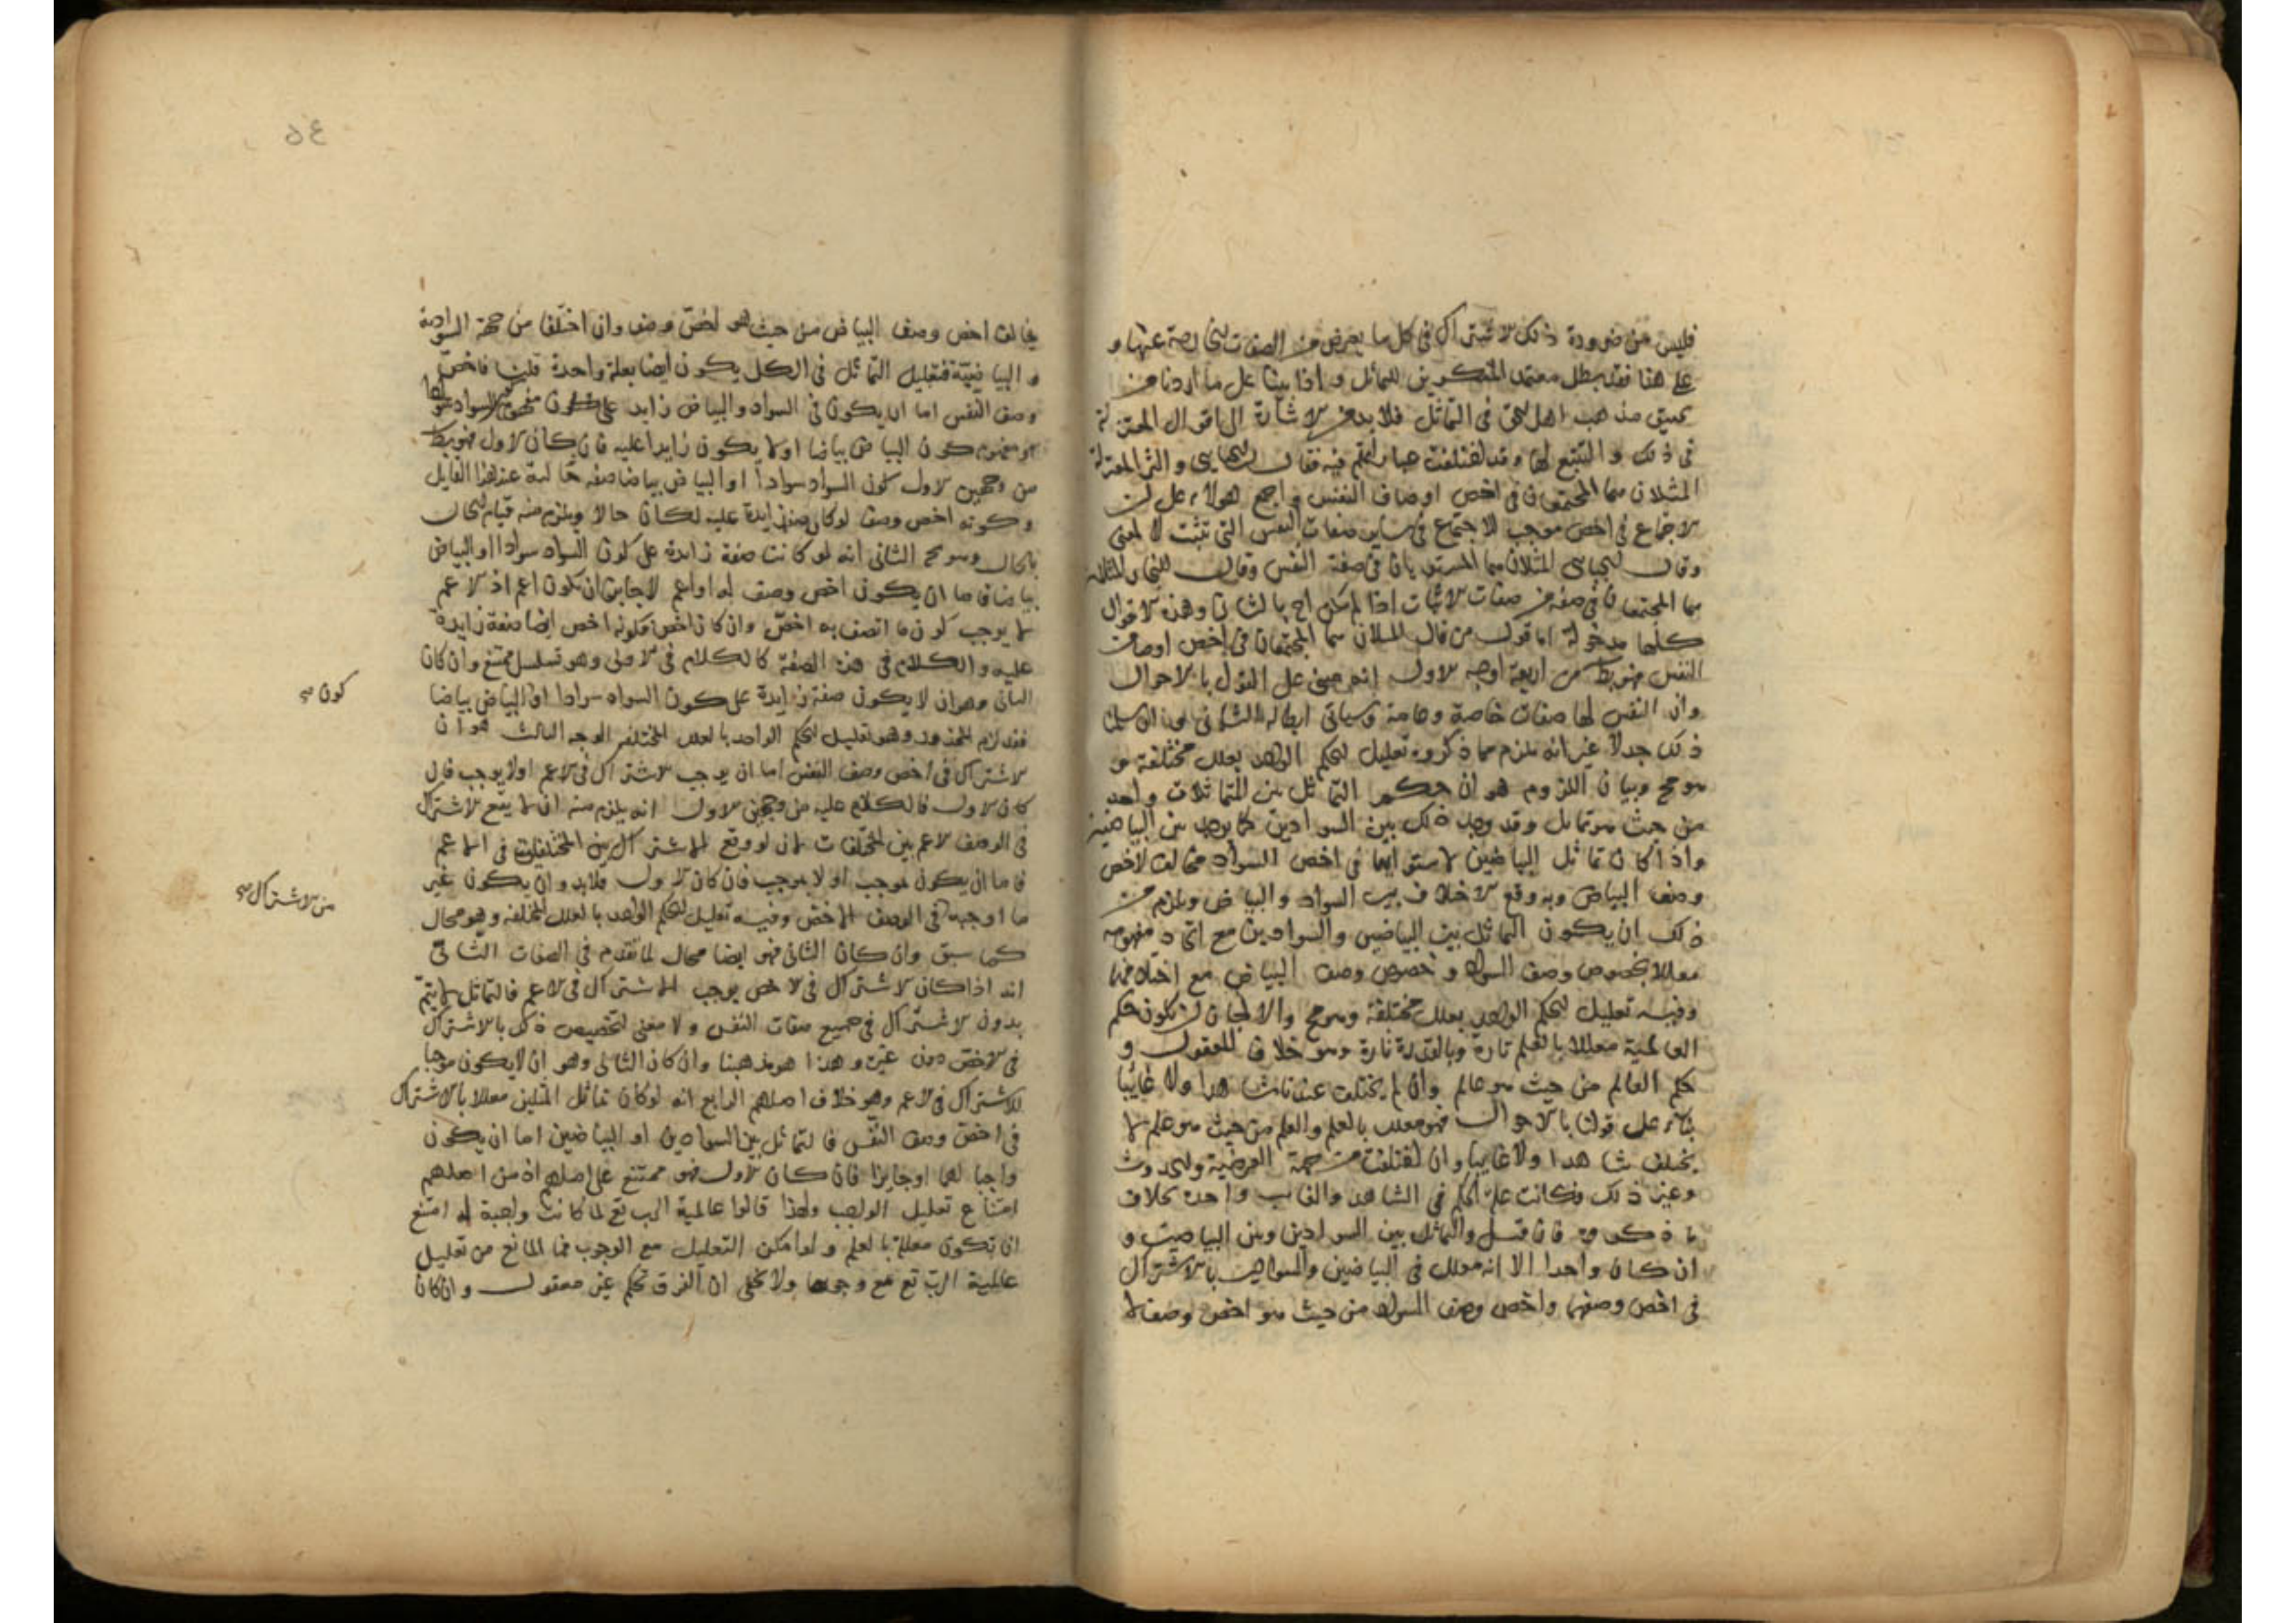 فليس من ضرورة ذلك الاشتراك فى كل ما يعرض من الصفات الخارجة عنها و
على هذا فقد بطل معتمد المنكرين للتماثل واذا بينا على ما اردنا من
تحقيق مذهب اهل الحق فى التماثل فلا بد من الاشارة الى اقوال المعتزلة
فى ذلك والتتبع لها وقد اختلفت عباراتهم فيه فقال الجبايى واكثر المعتزلة
المثلان هما المجتمعان فى اخص اوصاف النفس واجمع هولاء على ان
الاجتماع فى اخص موجب للاجتماع فى ساير صفات النفس التى تثبت لا لمعنى
وقال الجبايى المثلان هما المستويان فى صفة النفس وقال النجار المثلان
هما المجتمعان فى صفة من صفات الاثبات اذا لم يكن احدهما بالثانى وهذه الاقوال
كلها مدخولة اما قول من قال المثلان هما المجتمعان فى اخص اوصاف
النفس فهو باطل من اربعة اوجه الاول انه مبنى على القول بالاحوال
وان النفس لها صفات خاصة وعامة وسياتى ابطاله الثانى هو ان سلمنا
ذلك جدلا غير انه يلزم مما ذكروه تعليل الحكم الواحد بعلل مختلفة و
هو مح وبيان اللزوم هو ان حكم التماثل بين المتماثلات واحد
من حيث هو تماثل وقد وجد ذلك بين السوادين كما يوجد بين البياضين
واذا كان تماثل البياضين لاستوائهما فى اخص السواد مخالف لاخص
وصف البياض وبه وقع الاختلاف بين السواد والبياض ويلزم من
ذلك ان يكون التماثل بين البياضين والسوادين مع اتحاد مفهومه
معللا بخصوص وصف السواد وخصوص وصف البياض مع اختلافهما
وفيه تعليل الحكم الواحد بعلل مختلفة وهو مح والا لجاز ان يكون حكم
العالمية معللا بالعلم تارة وبالقدرة تارة وهو خلاف المعقول و
حكم العالم من حيث هو عالم وان لم يختلف عندنا شاهدا ولا غايبا
بناء على قولنا بالاحوال فهو معلل بالعلم والعلم من حيث هو علم لا
يختلف شاهدا ولا غايبا وان اختلفت من جهة العرضية والحدوث
وغير ذلك فكانت علة الحكم فى الشاهد والغايب واحدة بخلاف
ما ذكروه فان قيل والتماثل بين السوادين وبين البياضين و
ان كان واحدا الا انه معلل فى البياضين والسوادين بالاشتراك
فى اخص وصفهما واخص وصف السواد من حيث هو اخص وصف لا
٥٤
يخالف اخص وصف البياض من حيث هو اخص وصف وان اختلفا من جهة السوادية
والبياضية فتعليل التماثل فى الكل يكون ايضا بعلة واحدة قلنا فاخص
وصف النفس اما ان يكون فى السواد والبياض زايدا على مفهوم كون السواد سوادا
او مفهوم كون البياض بياضا او لا يكون زايدا عليه فان كان الاول فهو باطل
من وجهين الاول كون السواد سوادا او البياض بياضا صفة حالية عند هذا القايل
وكونه اخص وصف لو كان صفة زايدة عليه لكان حالا ويلزم منه قيام الحال
بالحال وهو مح الثانى انه لو كانت صفة زايدة على كون السواد سوادا او البياض
بياضا فاما ان يكون اخص وصف له او اعم لا جايز ان يكون اعم اذ الاعم
لا يوجب كون ما اتصف به اخص وان كان اخص فكونه اخص ايضا صفة زايدة
عليه والكلام فى هذه الصفة كالكلام فى الاولى وهو تسلسل ممتنع وان كان
الثانى وهو ان لا يكون صفة زايدة على كون السواد سوادا او البياض بياضا
كون صح
فقد لزم المحذور وهو تعليل الحكم الواحد بالعلل المختلفة الوجه الثالث هو ان
الاشتراك فى اخص وصف النفس اما ان يوجب الاشتراك فى الاعم او لا يوجب فان
كان الاول فالكلام عليه من وجهين الاول انه يلزم منه ان لا يقع الاشتراك
فى الوصف الاعم بين المختلفات لانه لو وقع الاشتراك بين المختلفات فى الاعم
فاما ان يكون لموجب او لا لموجب فان كان الاول فلا بد وان يكون غير
ما اوجبه فى الوصف الاخص وفيه تعليل الحكم الواحد بالعلل المختلفة وهو محال
من الاشتراك صح
كما سبق وان كان الثانى فهو ايضا محال لما تقدم فى الصفات الثانى
انه اذا كان الاشتراك فى الاخص يوجب الاشتراك فى الاعم فالتماثل لا يتم
بدون الاشتراك فى جميع صفات النفس ولا معنى لتخصيص ذلك بالاشتراك
فى الاخص دون غيره وهذا هو مذهبنا وان كان الثانى وهو ان لا يكون موجبا
للاشتراك فى الاعم وهو خلاف اصلهم الرابع انه لو كان تماثل المثلين معللا بالاشتراك
فى اخص وصف النفس فالتماثل بين السوادين او البياضين اما ان يكون
واجبا لهما او جايزا فان كان الاول فهو ممتنع على اصلهم اذ من اصلهم
امتناع تعليل الواجب ولهذا قالوا عالمية الرب تع لما كانت واجبة له امتنع
ان تكون معللة بالعلم ولو امكن التعليل مع الوجوب فما المانع من تعليل
عالمية الرب تع مع وجوبها ولا يخفى ان الفرق تحكم غير معقول وان كان